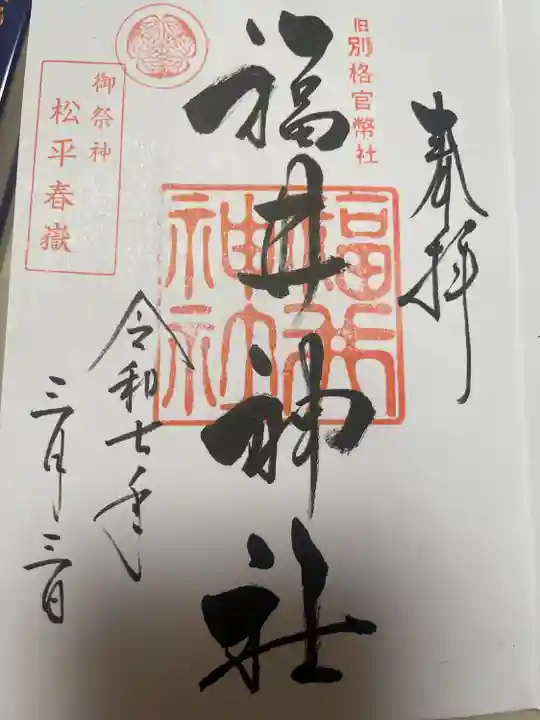 奉拝
旧別格官幣社
福井神社
福井
神社
御祭神
松平春嶽
令和七年
三月三日